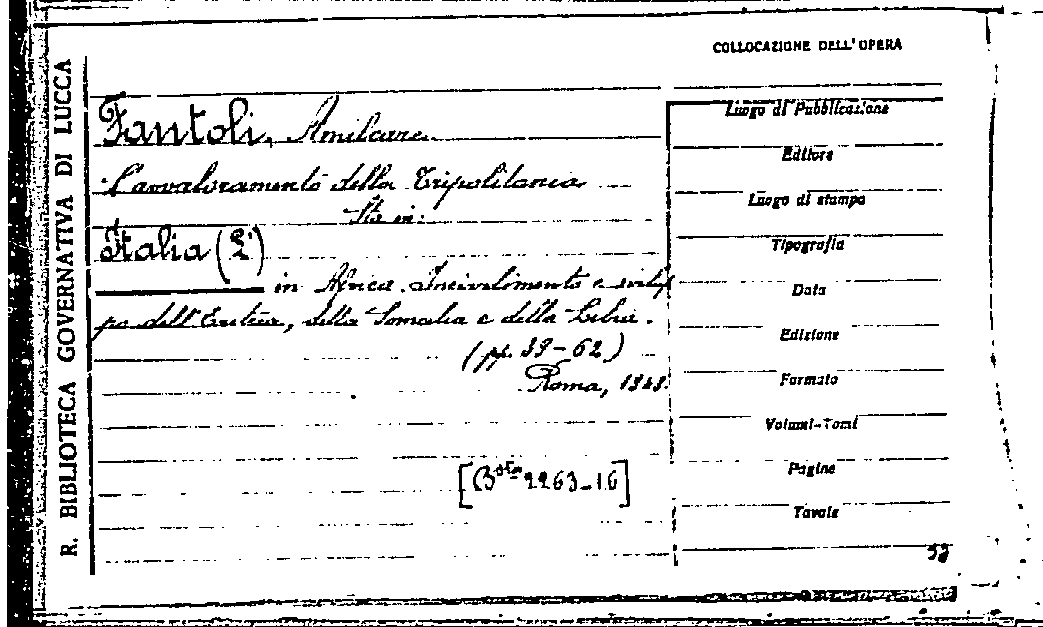 COLLOCAZIONE DELL'OPERA
R. BIBLIOTECA GOVERNATIVA DI LUCCA
Fantoli, Amilcare.
L'avvaloramento della Tripolitania
Sta in:
Italia (L')
in Africa. Incivilimento e svilup
po dell'Eritrea, della Somalia e della Libia.
(pp. 39-62)
Roma,
[B 2263-16]
Luogo di Pubblicazione
Editore
Luogo di stampa
Tipografia
Data
Edizione
Formato
Volumi-Tomi
Pagine
Tavole